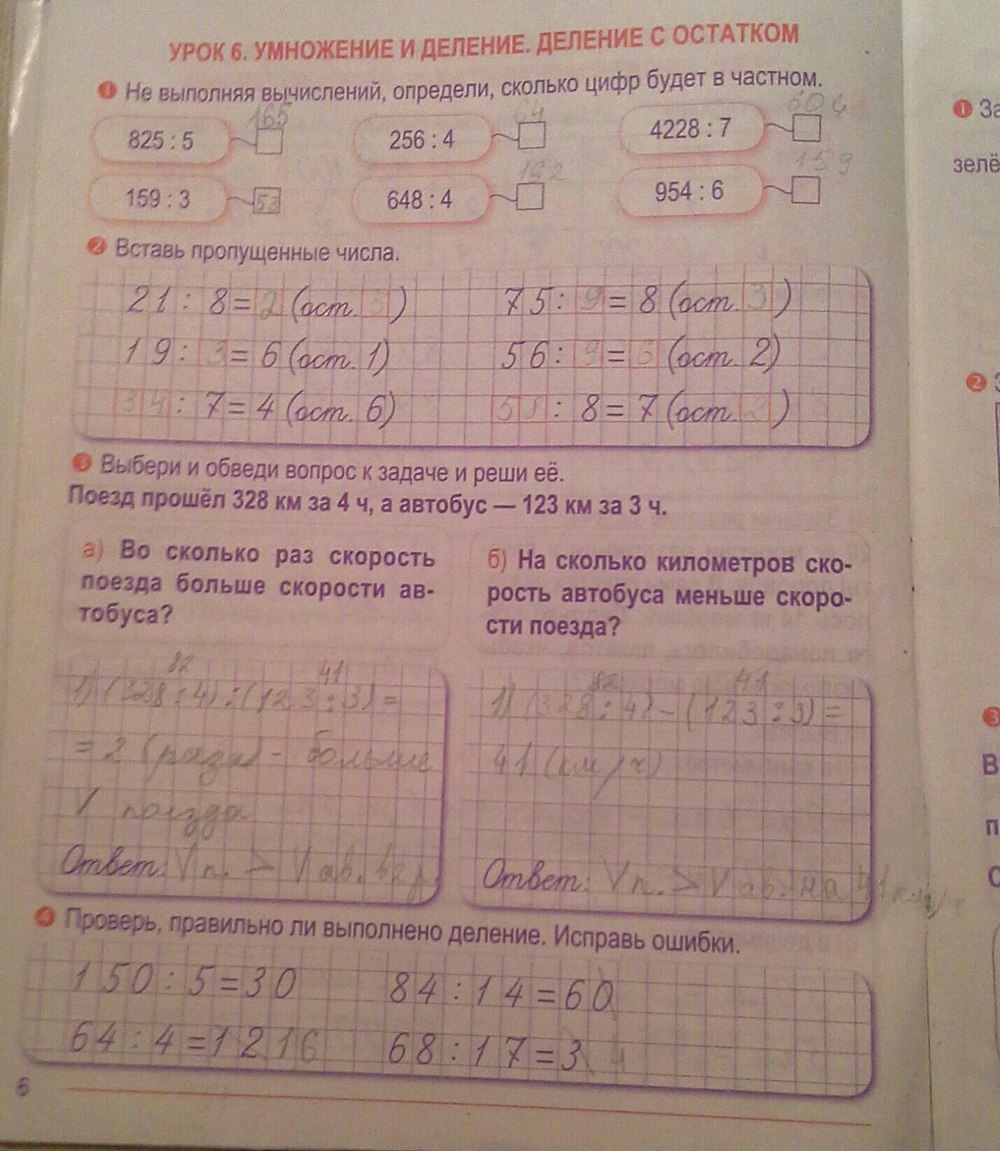 УРОК 6. УМНОЖЕНИЕ И ДЕЛЕНИЕ. ДЕЛЕНИЕ С ОСТАТКОМ
1 Не выполняя вычислений, определи, сколько цифр будет в частном.
165 64 604
825 : 5 256 : 4 4228 : 7
162 159
159 : 3 53 648 : 4 954 : 6
2 Вставь пропущенные числа.
21 : 8 = 2 (ост. 5) 75 : 9 = 8 (ост. 3)
19 : 3 = 6 (ост. 1) 56 : 9 = 6 (ост. 2)
34 : 7 = 4 (ост. 6) 58 : 8 = 7 (ост. 2)
3 Выбери и обведи вопрос к задаче и реши её.
Поезд прошёл 328 км за 4 ч, а автобус — 123 км за 3 ч.
а) Во сколько раз скорость
поезда больше скорости ав-
тобуса?
б) На сколько километров ско-
рость автобуса меньше скоро-
сти поезда?
82 41
1) (328 : 4) : (123 : 3) =
= 2 (раза) - больше
V поезда
Ответ: Vп. > Vав. в 2 р.
82 41
1) (328 : 4) - (123 : 3) =
41 (км/ч)
Ответ: Vп. > Vав. на 41 км/ч
4 Проверь, правильно ли выполнено деление. Исправь ошибки.
150 : 5 = 30 84 : 14 = 60
64 : 4 = 12 16 68 : 17 = 3 4
6
1 За
зелё
2 З
3
В
п
С